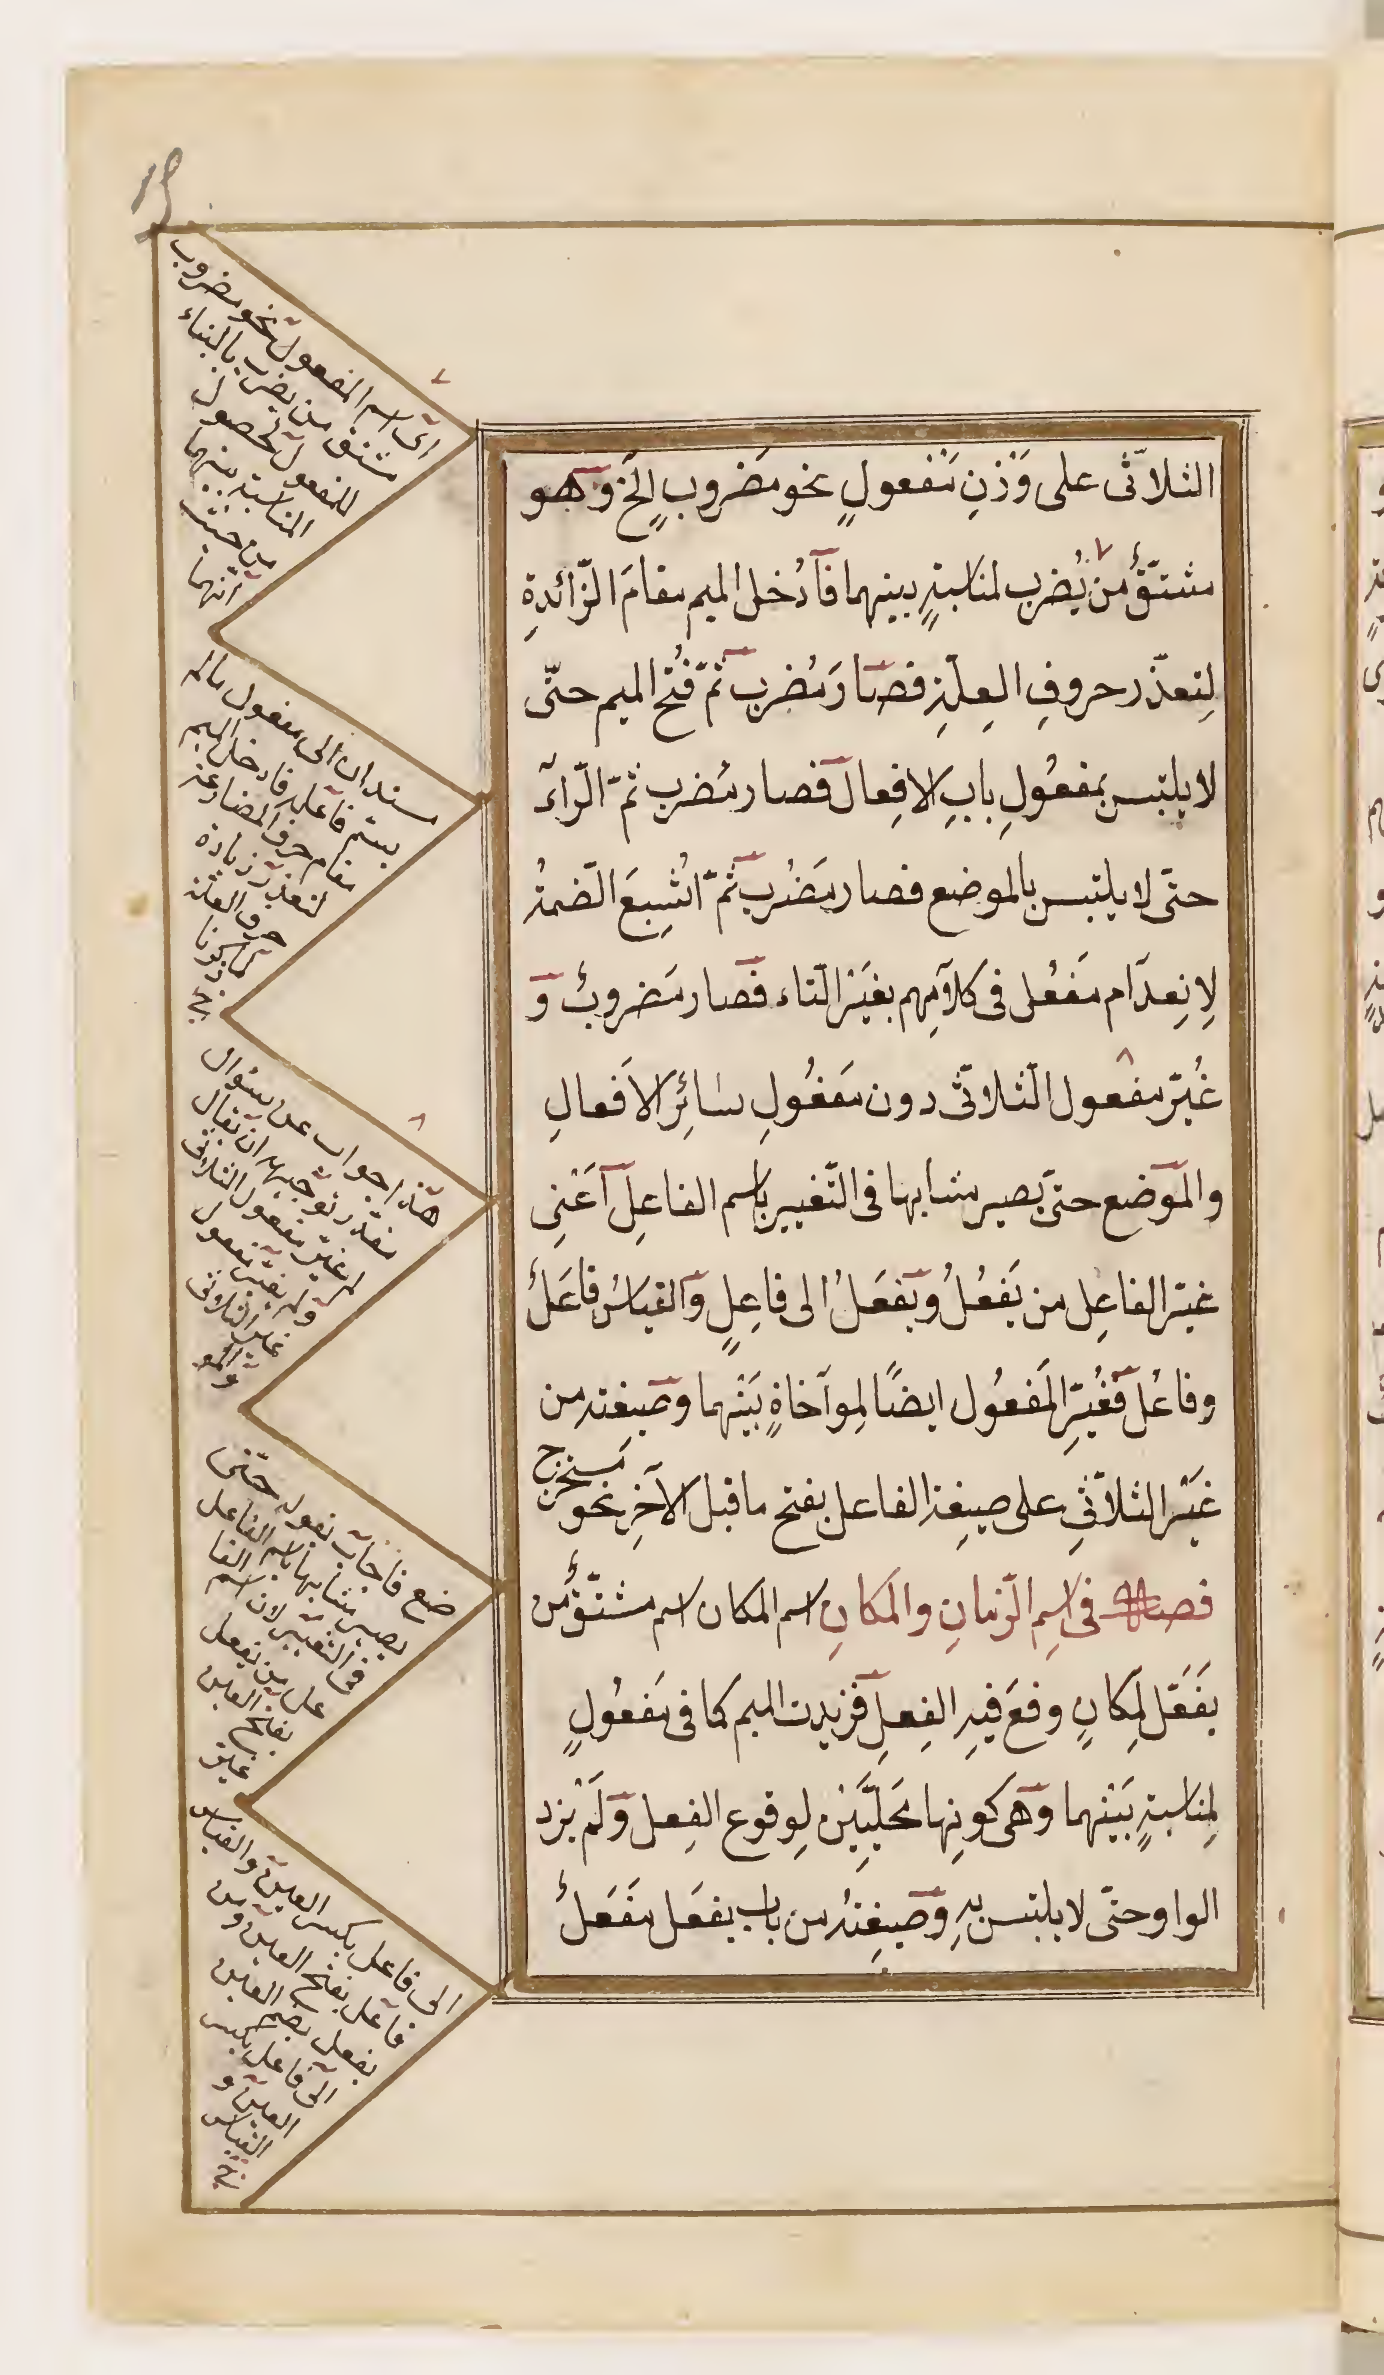 الثلاثّى على وَزْنِ مَنْفعولٍ نحو مَضروبٍ الَخ وَهو
مشتقٌّ من يُضرب لمناسبةٍ بينهما فاَدُخل الميم مقامَ الزّائدةِ
لِتعذّر حروفِ العِلّةِ فصار مُضرب ثمّ فُتح الميم حتّى
لا يلتبس بمفعُولِ بابِ الافِعال فصار مَضرب ثمّ الرّاءَ
حتّى لا يلتبس بالموضع فصار مَضْرُب ثمّ اُشْبِعَ الضّمةُ
لِانِعدَام مَفْعُل فى كلامِهم بغَيْرِ التاء فصار مَضروبٌ وَ
غُيّرَ مفعول الثّلاثّى دون مَفعُولِ سَائِرِ الاَفعالِ
والموَضع حتىّ يَصير مشابها فى التّغيير باسم الفاعِل اَعْنِى
غيّر الفاعِل من يَفعُلُ وَيَفعَلُ الى فاعِلٍ وَالقياسُ فاعَلٌ
وفاعُل فَغُيّرِ المَفعُول ايضًا لِموآخاةٍ بَيْنهما وَصيغته من
غَيْرِ الثلاثّىِ على صيغة الفاعل بفتح ما قبل الآخِر نحو مُستخرج
فصل فى اسِمِ الزّمانِ والمكانِ اسم المكان اسم مشتقٌّ من
يَفَعَل لِمَكانٍ وقعَ فيهِ الفِعلِ فزيدت الميم كما فى مَفعُولٍ
لِمناسبةٍ بَيْنهما وَهى كونِها مَحَليّيَنْ لِوقوع الفِعل وَلَمْ يزد
الواو حتّى لا يلتبس بهِ وَصيغِتهُ من باب يفعَل مَفعَلٌ
اى اسم المفعول نحو مضروب
مشتق من يضرب بالبناء
للمفعول لحصول
المناسبة بينهما
من حيث
انهما
مسندان الى مفعول مالم
يسّم فاعله فادخل الميم
مقام حرف المضارعة
لتعذر زيادة
حرف العلة
كما
هذا جواب عن سؤال
مقدر توجيهه ان يقال
لم غيّر مفعول الثلاثى
ولم يغيّر مفعول
غير الثلاثى
والمو
ضع فاجاب بقوله حتّى
يصير مشابها باسم الفاعل
فى التغيير لان اسم الفا
عل من يفعل
بفتح العين
غير
الى فاعل بكسر العين والقياس
فاعل بفتح العين ومن
يفعل بضم العين
الى فاعل بكسر
العين و
القياس